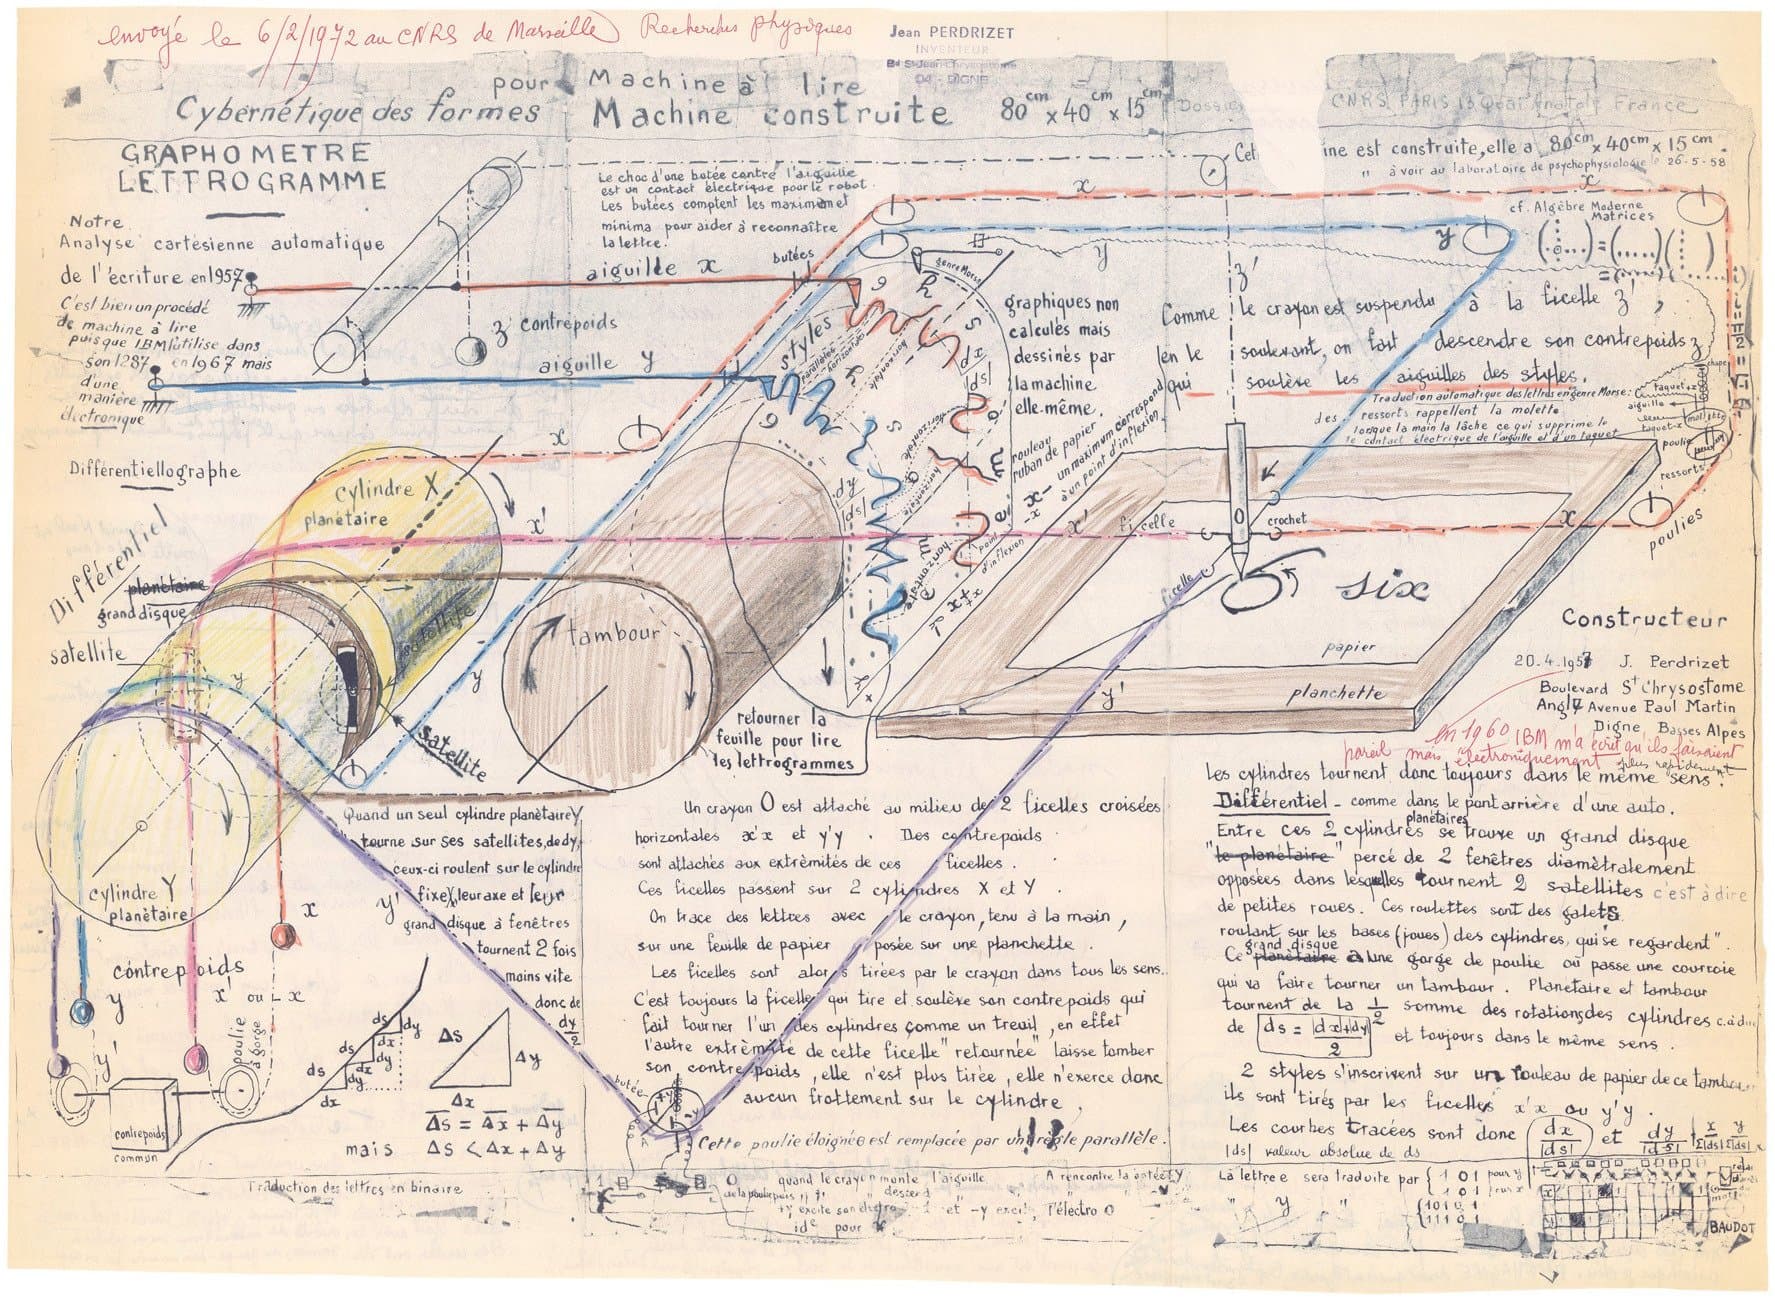 envoyé le 6/2/1972 au CNRS de Marseille Recherches physiques
Jean PERDRIZET
INVENTEUR
Bd St Jean Chrysostome
04 - DIGNE
pour Machine à lire
Cybernétique des formes Machine construite 80cm x 40cm x 15cm
Dossier CNRS PARIS 13 Quai Anatole France
GRAPHOMETRE
LETTROGRAMME
Notre
Analyse cartésienne automatique
de l'écriture en 1957
C'est bien un procédé
de machine à lire
puisque IBM l'utilise dans
son 1287 en 1967 mais
d'une
manière
électronique
Le choc d'une butée contre l'aiguille
est un contact électrique pour le robot.
Les butées comptent les maxima et
minima pour aider à reconnaître
la lettre.
ine est construite, elle a 80cm x 40cm x 15cm.
" à voir au laboratoire de psychophysiologie le 26-5-58
cf. Algèbre Moderne
Matrices
x
x
y
y
butées
aiguille x
z contrepoids
aiguille y
styles
genre Morse
graphiques non
calculés mais
dessinés par
la machine
elle-même.
z'
Comme le crayon est suspendu à la ficelle z',
en le soulevant, on fait descendre son contrepoids z
qui soulève les aiguilles des styles.
Traduction automatique des lettres en genre Morse:
des ressorts rappellent la molette
lorsque la main la lâche ce qui supprime
le contact électrique de l'aiguille et d'un taquet
taquet+x
aiguille
taquet-x
poulie
ressorts
poulies
rouleau
ruban de papier
un maximum correspond
à un point d'inflexion
point
d'inflexion
dx
|ds|
dy
|ds|
Différentiellographe
Différentiel
planétaire
grand disque
satellite
cylindre X
planétaire
satellite
x
x'
tambour
y
satellite
x'
ficelle
crochet
x
ficelle
six
papier
planchette
y'
retourner la
feuille pour lire
les lettrogrammes
Constructeur
20.4.1957 J. Perdrizet
Boulevard St Chrysostome
Angle Avenue Paul Martin
Digne Basses Alpes
en 1960 IBM m'a écrit qu'ils faisaient
pareil mais électroniquement plus rapidement
cylindre Y
planétaire
contrepoids
x
y
x' ou - x
y'
poulie
à gorge
contrepoids
commun
Quand un seul cylindre planétaire Y
tourne sur ses satellites, de dy,
ceux-ci roulent sur le cylindre
fixe X, leur axe et leur
grand disque à fenêtres
tournent 2 fois
moins vite
donc de
dy/2
y'
ds
dy
dx
ds
dy
dx
ds
dy
dx
Δs
Δy
Δx
Δs = Δx + Δy
mais Δs < Δx + Δy
butée
Un crayon O est attaché au milieu de 2 ficelles croisées
horizontales x'x et y'y. Des contrepoids
sont attachés aux extrémités de ces ficelles.
Ces ficelles passent sur 2 cylindres X et Y.
On trace des lettres avec le crayon, tenu à la main,
sur une feuille de papier posée sur une planchette.
Les ficelles sont alors tirées par le crayon dans tous les sens.
C'est toujours la ficelle qui tire et soulève son contrepoids qui
fait tourner l'un des cylindres comme un treuil, en effet
l'autre extrémité de cette ficelle "retournée" laisse tomber
son contrepoids, elle n'est plus tirée, elle n'exerce donc
aucun frottement sur le cylindre,
Cette poulie éloignée est remplacée par une règle parallèle.
les cylindres tournent donc toujours dans le même sens.
Différentiel - comme dans le pont arrière d'une auto.
Entre ces 2 cylindres planétaires se trouve un grand disque
"le planétaire" percé de 2 fenêtres diamètralement
opposées dans lesquelles tournent 2 satellites c'est à dire
de petites roues. Ces roulettes sont des galets
roulant sur les bases (joues) des cylindres, qui "se regardent".
Ce planétaire grand disque a une gorge de poulie où passe une courroie
qui va faire tourner un tambour. Planétaire et tambour
tournent de la 1/2 somme des rotations des cylindres c.à.d.
de ds = |dx+dy|/2 et toujours dans le même sens.
2 styles s'inscrivent sur un rouleau de papier de ce tambour
ils sont tirés par les ficelles x'x ou y'y.
Les courbes tracées sont donc dx/|ds| et dy/|ds|
|ds| valeur absolue de ds
Traduction des lettres en binaire
quand le crayon monte l'aiguille A rencontre la butée Y
La lettre e sera traduite par { 1 0 1 pour y
BAUDOT